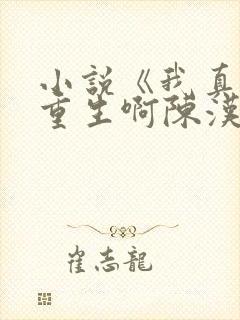 小說《我真
重生啊陳漢
崔志龍